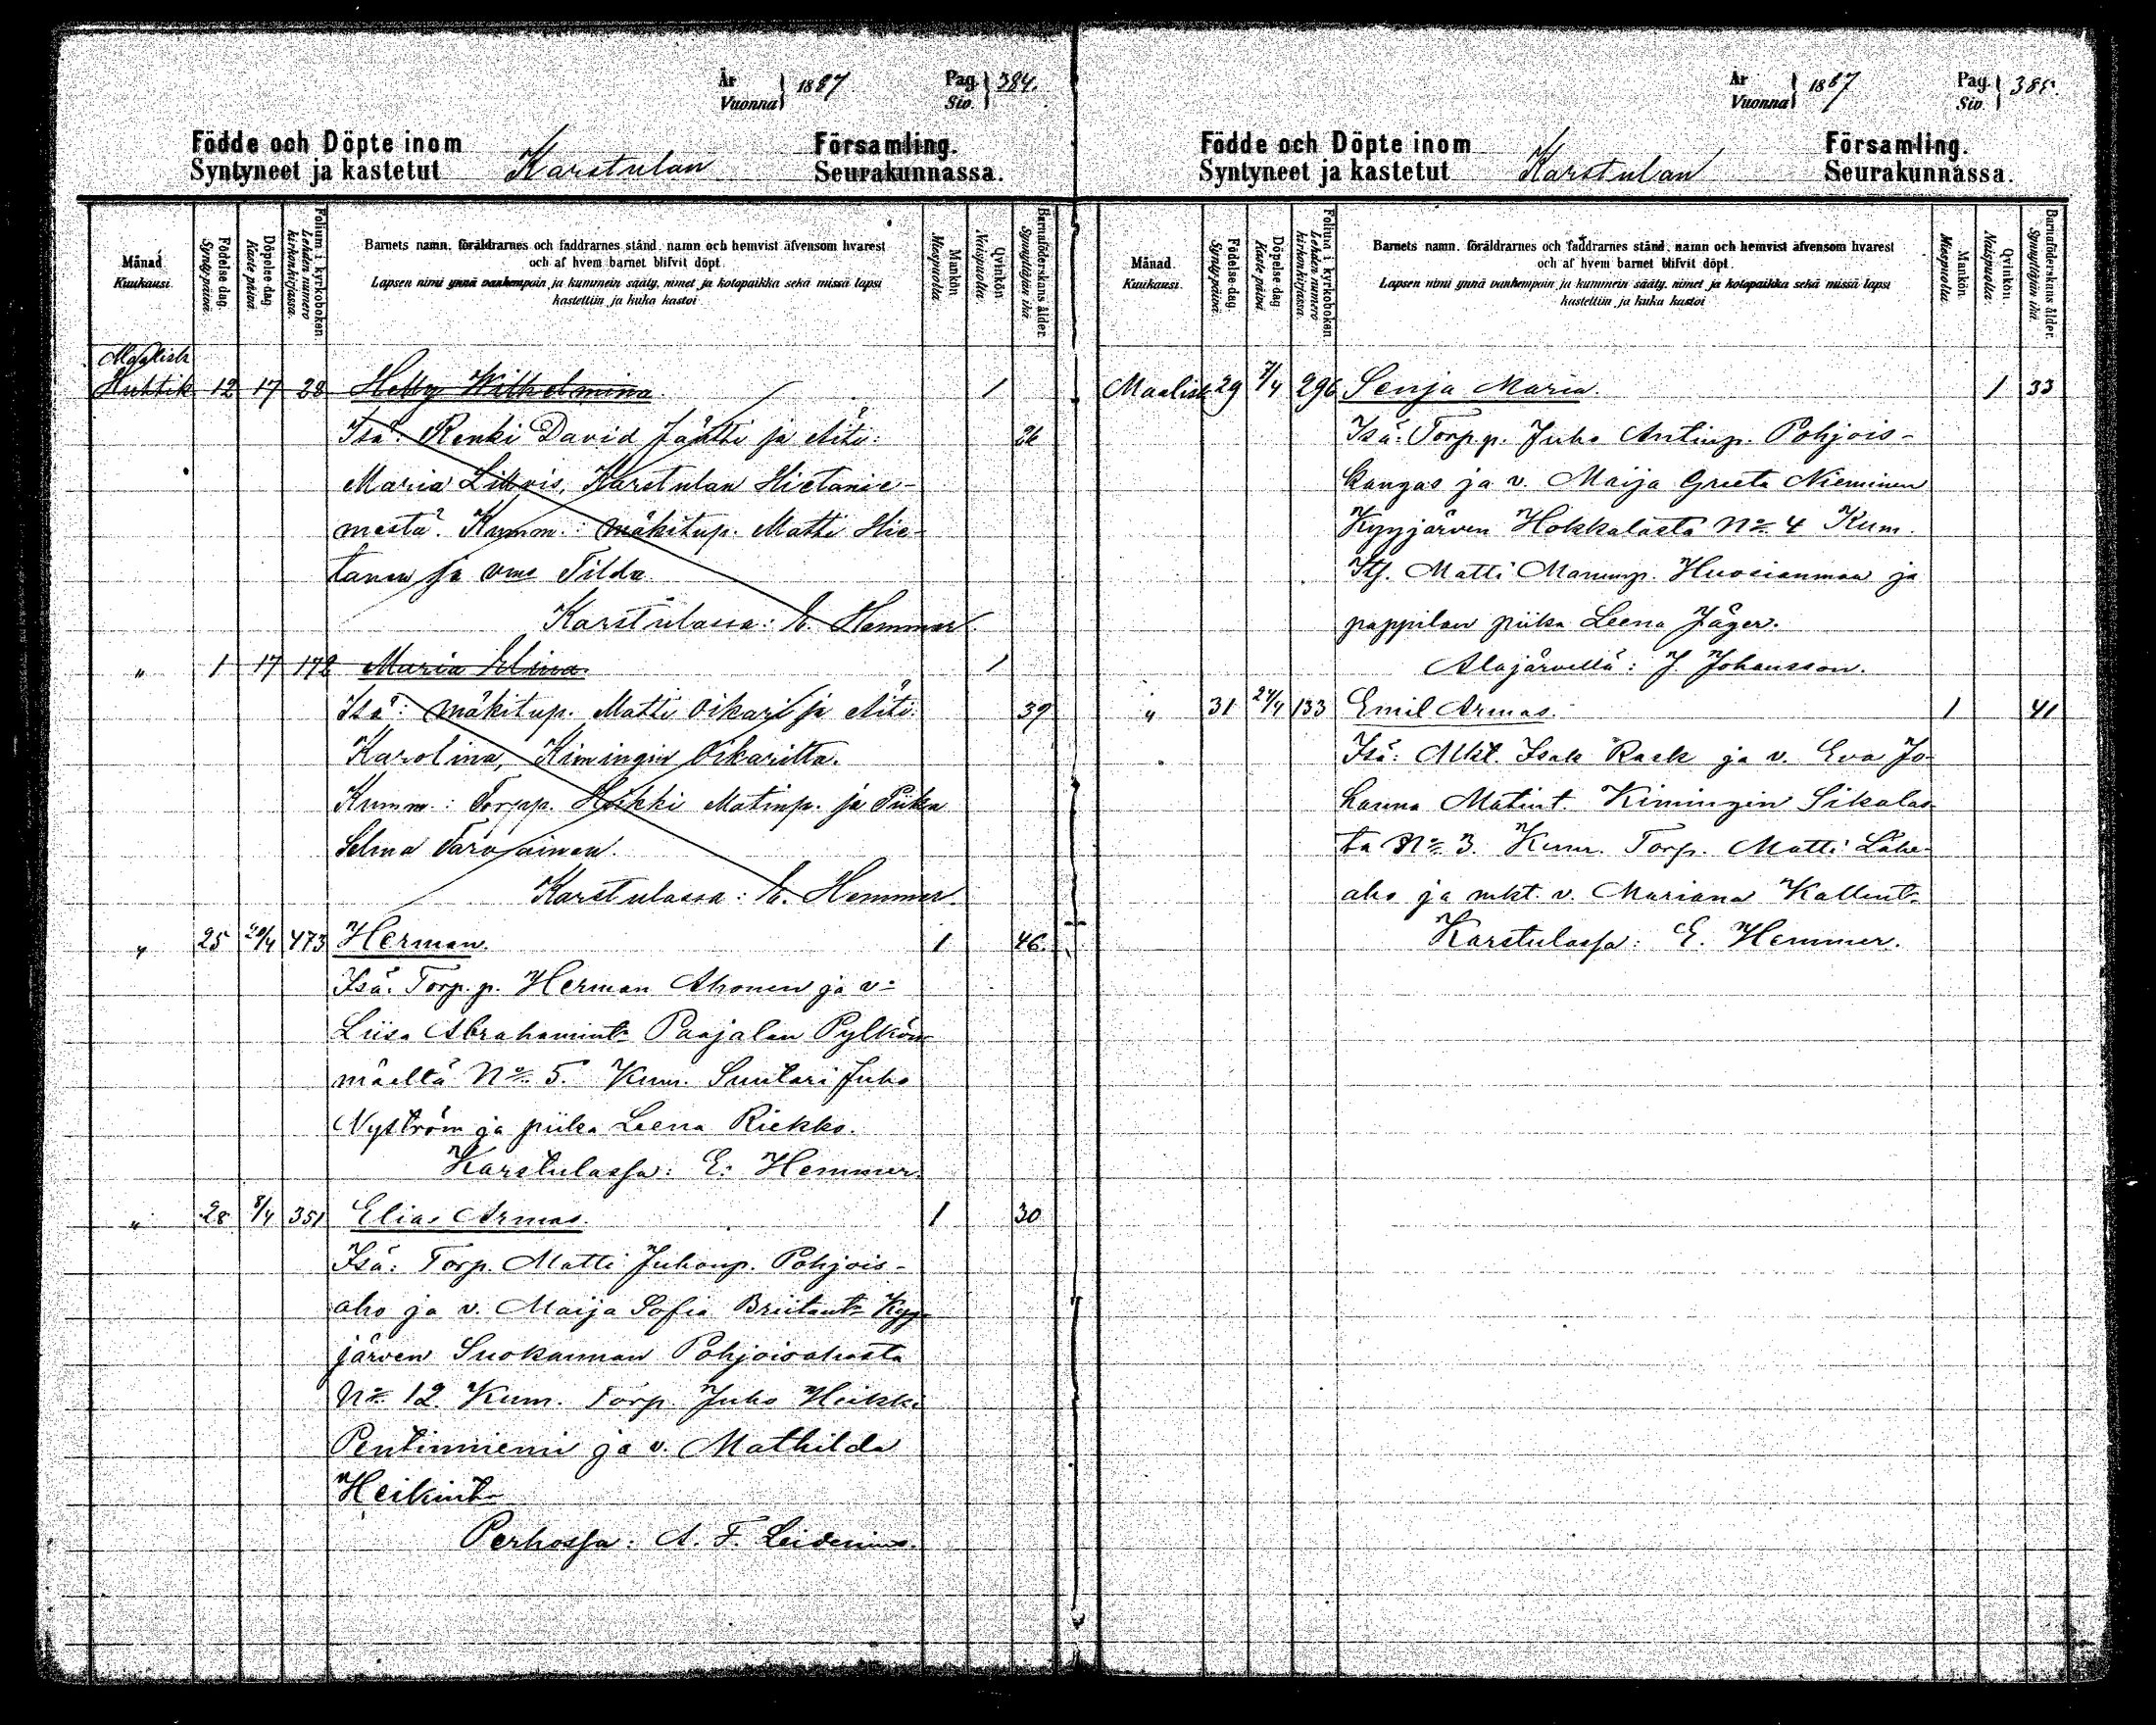 År Vuonna 1887 Pag. Siv. 384.
Födde och Döpte inom Församling.
Syntyneet ja kastetut Karstulan Seurakunnassa.
Månad. Kuukausi.
Födelse dag. Syntypäivä.
Döpelse-dag. Kaste päivä.
Folium i kyrkoboken. Lehden numero kirkonkirjassa.
Barnets namn, föräldrarnes och faddrarnes stånd, namn och hemvist äfvensom hvarest
och af hvem barnet blifvit döpt.
Lapsen nimi ynnä vanhempain ja kummein sääty, nimet ja kotopaikka sekä missä lapsi
kastettiin ja kuka kastoi
Mankön. Miespuolia.
Qvinkön. Naispuolia.
Barnaföderskans ålder. Synnyttäjän ikä.
Maalisk
Huhtik 12 17 28 Helly Wilhelmina. 1
Isä: Renki David Jäntti ja Äiti: 26
Maria , Karstulan Hietanie-
mestä. Kumm.: mäkitup. Matti Hie-
tanen ja vmo Tilda
Karstulassa: E. Hemmer.
" 1 17 172 Maria Elina. 1
Isä: mäkitup. Matti Oikari ja Äiti: 39
Karolina, Kimingin Oikarilta.
Kumm.: Torpp. Heikki Matinp. ja Piika
Selma Tarvainen.
Karstulassa: E. Hemmer.
" 25 20/4 473 Herman. 1 46.
Isä: Torp. p. Herman Ahonen ja v:
Liisa Abrahamint. Paajalan Pylkön-
mäeltä No 5. Kum. Suutari Juho
Nyström ja piika Leena Riekko.
Karstulassa: E. Hemmer.
" 28 8/4 351 Elias Armas. 1 30
Isä: Torp. Matti Juhonp. Pohjois-
aho ja v. Maija Sofia Briitant. Kyy-
järven Suokannan Pohjoisahosta
No 12. Kum. Torp. Juho Heikki
Pentinniemi ja v. Mathilda
Heikint.
Perhossa: A. F. Leidenius.
År Vuonna 1887 Pag. Siv. 385.
Födde och Döpte inom Församling.
Syntyneet ja kastetut Karstulan Seurakunnassa.
Månad. Kuukausi.
Födelse-dag. Syntypäivä.
Döpelse-dag. Kaste päivä.
Folium i kyrkoboken. Lehden numero kirkonkirjassa.
Barnets namn, föräldrarnes och faddrarnes stånd, namn och hemvist äfvensom hvarest
och af hvem barnet blifvit döpt.
Lapsen nimi ynnä vanhempain ja kummein sääty, nimet ja kotopaikka sekä missä lapsi
kastettiin ja kuka kastoi
Mankön. Miespuolia.
Qvinkön. Naispuolia.
Barnaföderskans ålder. Synnyttäjän ikä.
Maalisk 29 7/4 296 Senja Maria. 1 33
Isä: Torp. p. Juho Antinp. Pohjois-
kangas ja v. Maija Greeta Nieminen
Kyyjärven Hokkalasta No 4 Kum.
Itf. Matti Manunp. Huosianmaa ja
pappilan piika Leena Jäger.
Alajärvellä: J. Johansson.
" 31 24/4 133 Emil Armas. 1 41
Isä: Mkt. Isak Rask ja v. Eva Jo-
hanna Matint. Kimingin Sikalas-
ta No 3. Kum. Torp. Matti Lähe-
aho ja mkt. v. Mariana Kallent.
Karstulassa: E. Hemmer.